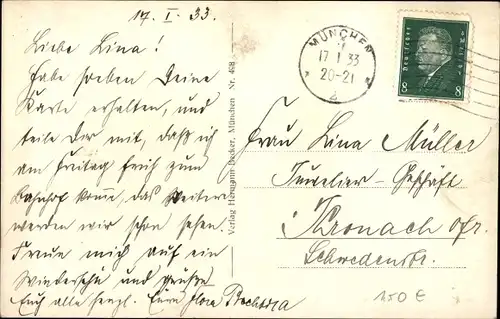 17. I. 33.
Liebe Lina!
Habe soeben Deine
Karte erhalten, und
teile Dir mit, daß ich
am Freitag früh zum
Bahnhof komme, das Weitere
werden wir schon sehen.
Freue mich auf ein
Wiedersehn und grüße
Euch alle herzl. Eure Flora
Verlag Hermann Becker, München Nr. 468
MÜNCHEN
17 1 33
20-21
Deutsches Reich
8 8
Frau Lina Müller
Juwelier-Geschäft
Kronach ofr.
Schwedenstr.
150 €